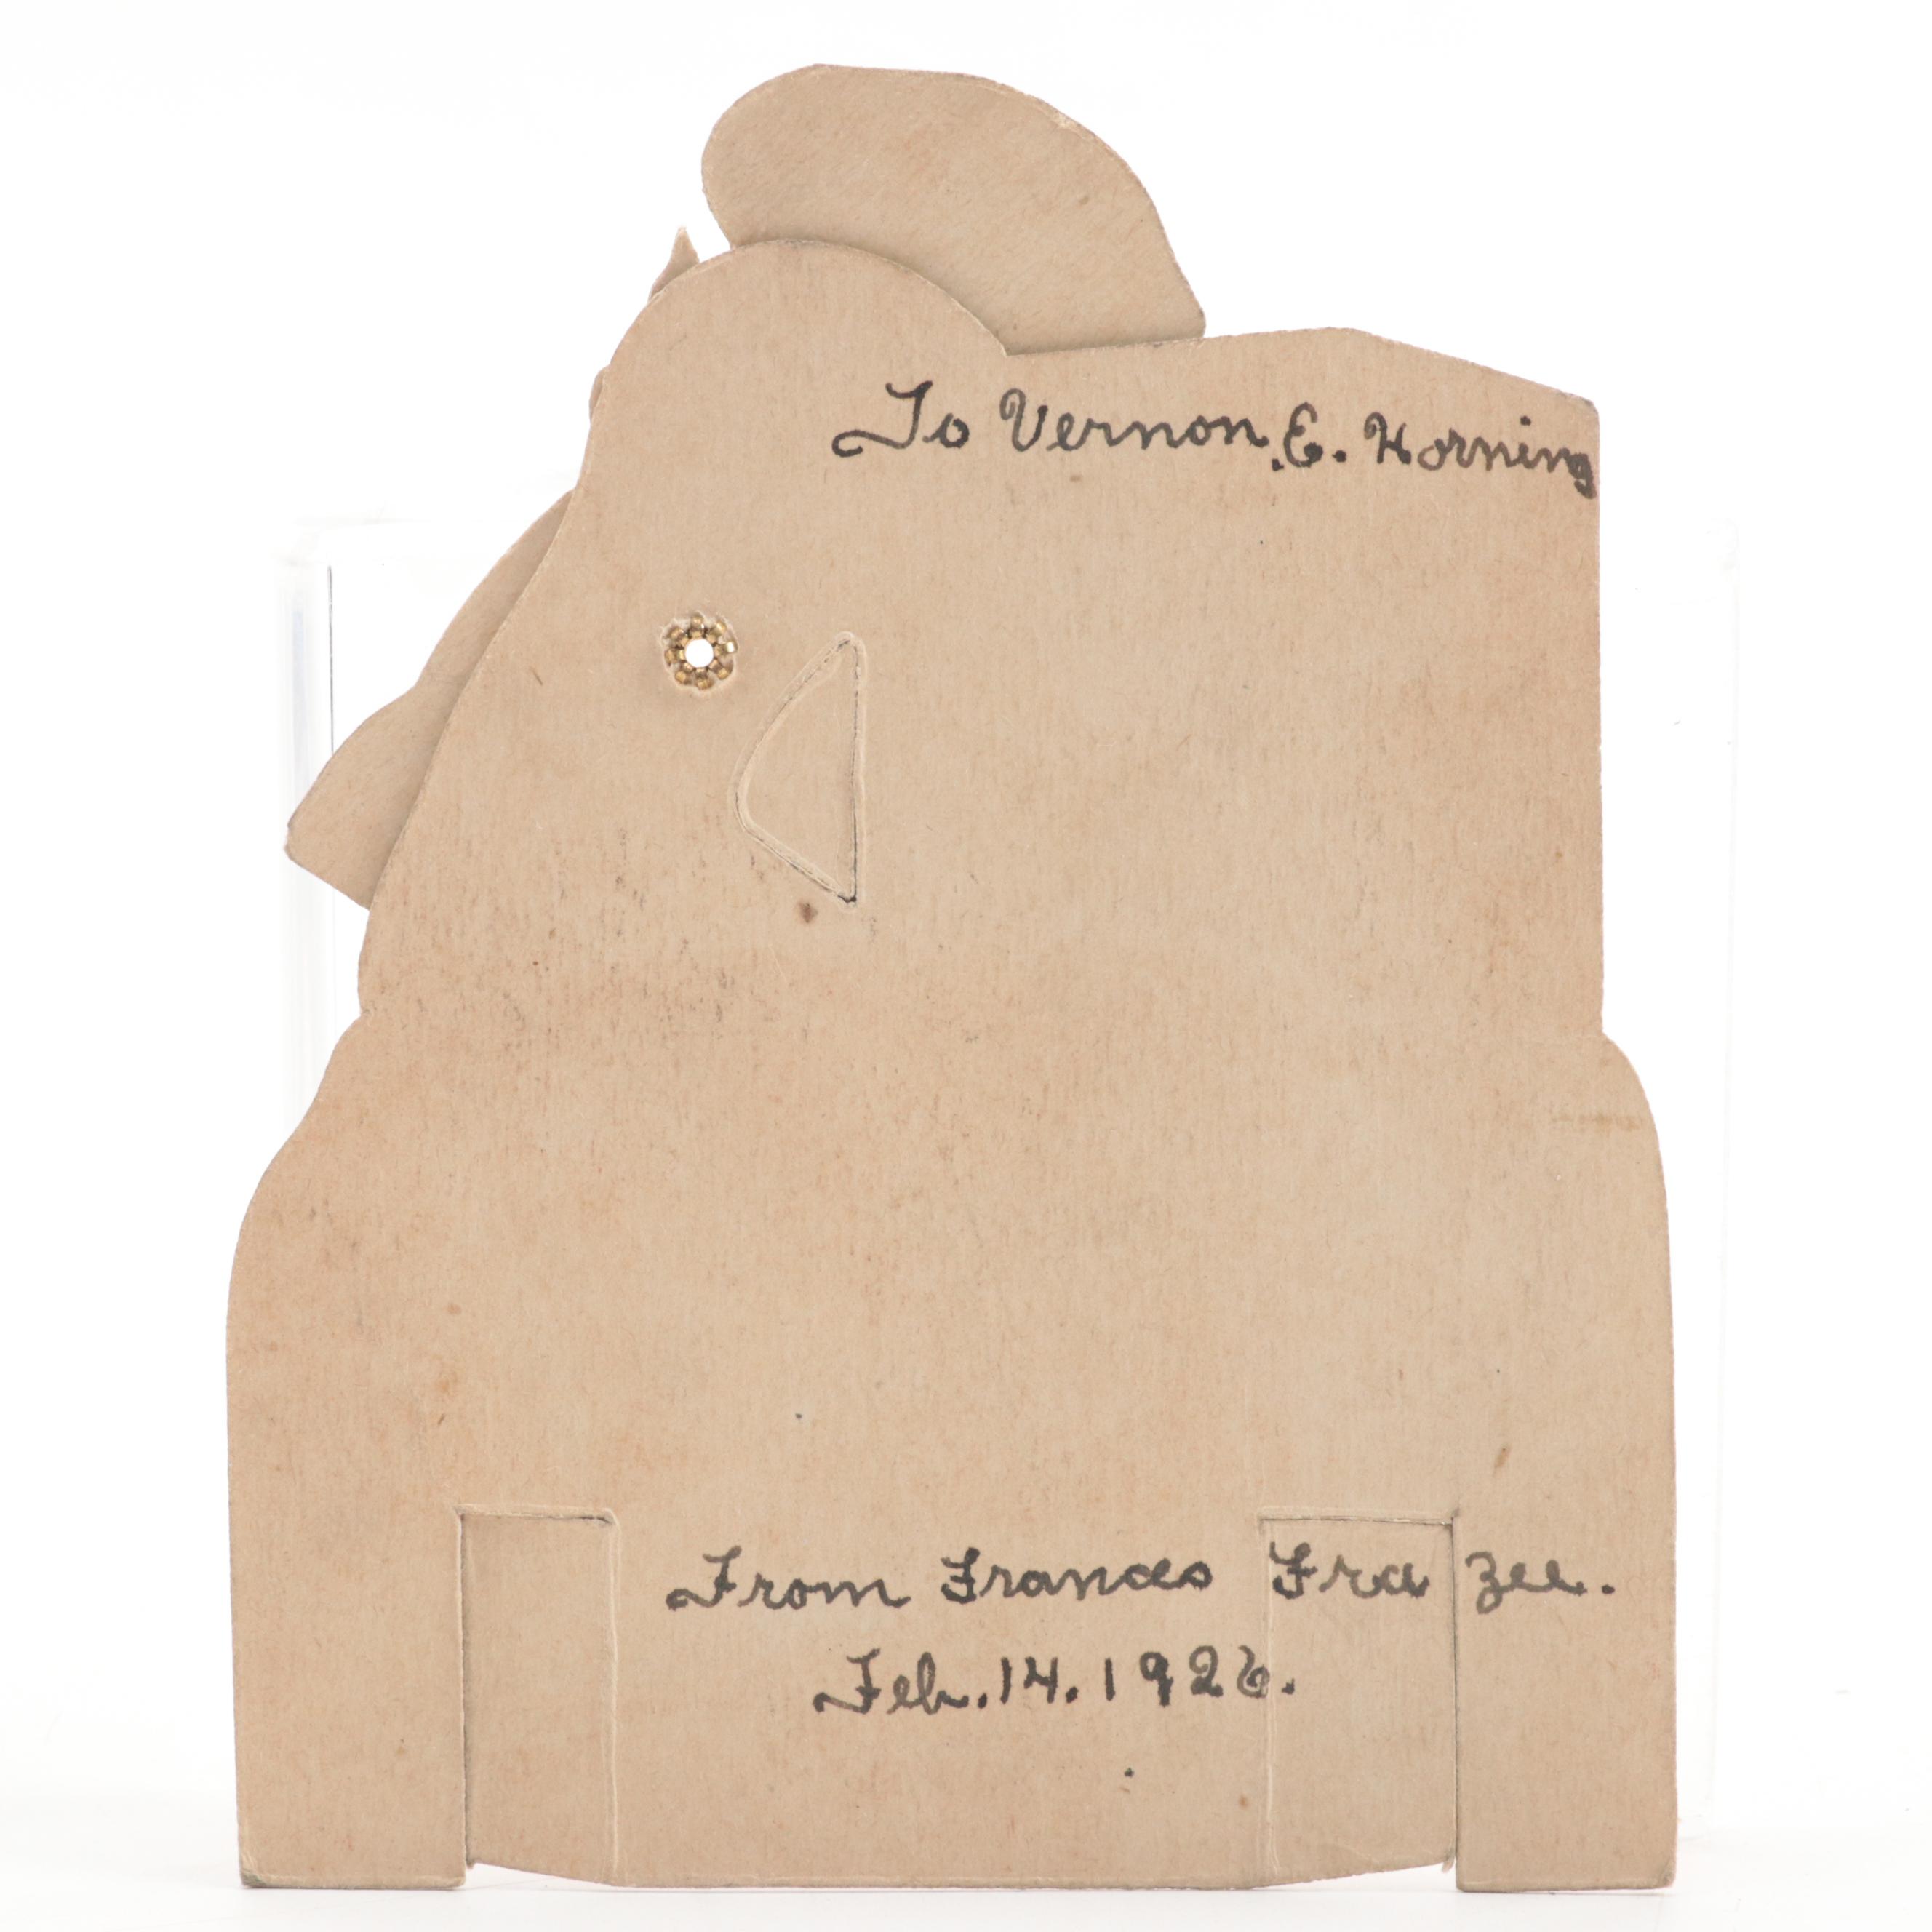 To Vernon. E. Horning
From Frances Frazee.
Feb. 14. 1926.